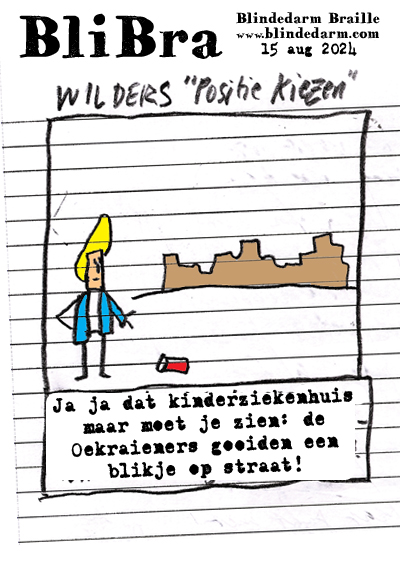 BliBra
Blindedarm Braille
www.blindedarm.com
15 aug 2024
WILDERS "Positie Kiezen"
Ja ja dat kinderziekenhuis
maar moet je zien: de
Oekraieners gooiden een
blikje op straat!